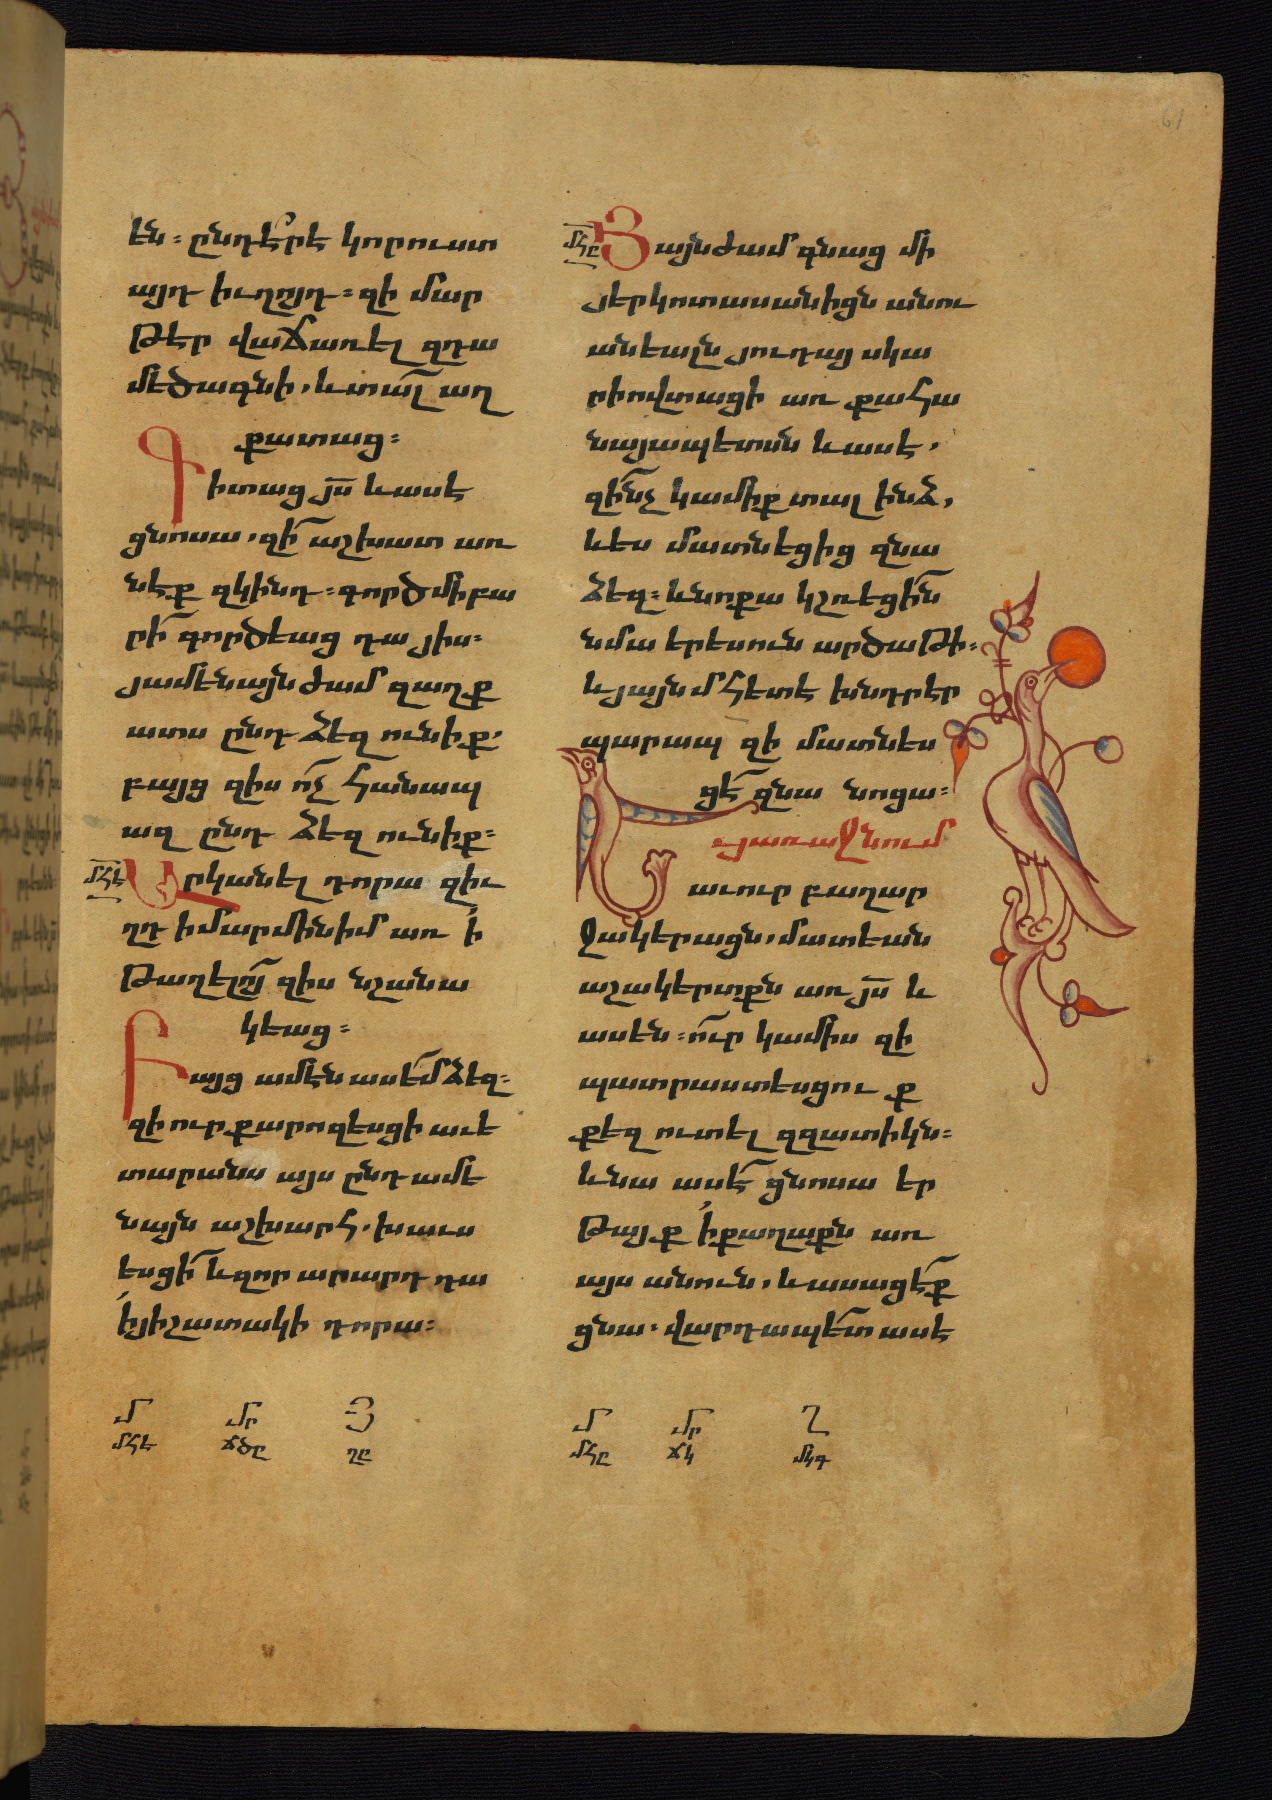 61
էն։ ընդէ՞րէ կորուստ
այդ իւղոյդ։ զի մար
թէր վաճառել զդա
մեծագնի, և տալ աղ
քատաց։
Գիտաց յս և ասէ
ցնոսա, զի՞ աշխատ առ
նէք զկինդ։ գործ մի բա
րի գործեաց դա յիս։
յամենայն ժամ զաղք
ատս ընդ ձեզ ունիք,
բայց զիս ոչ հանապ
ազ ընդ ձեզ ունիք։
մհե Արկանել դորա զիւ
ղդ ի մարմին իմ առ ի
թաղելոյ զիս նշանա
կեաց։
Բայց ամէն ասեմ ձեզ։
զի ուր քարոզեսցի աւե
տարանս այս ընդ ամե
նայն աշխարհ, խաւս
եսցի և զոր արարդ դա
ի յիշատակի դորա։
մհը Յայնժամ գնաց մի
յերկոտասանիցն անու
անեալն յուդայ սկա
րիովտացի առ քահա
նայապետսն և ասէ,
զի՞նչ կամիք տալ ինձ,
և ես մատնեցից զնա
ձեզ։ և նոքա կշռեցին
նմա երեսուն արծաթի։
և յայնմ հետէ խնդրէր
պարապ զի մատնես
ցէ զնա նոցա։
Յառաջնում
աւուր բաղար
ջակերացն, մատեան
աշակերտքն առ յս և
ասեն։ ո՞ւր կամիս զի
պատրաստեսցուք
քեզ ուտել զզատիկն։
և նա ասէ ցնոսա եր
թայք ի քաղաքն առ
այս անուն, և ասացէք
ցնա. վարդապետ ասէ
մ մր Յ
մհե ճծը ղը
մ մր Ղ
մհը ճկ մկգ